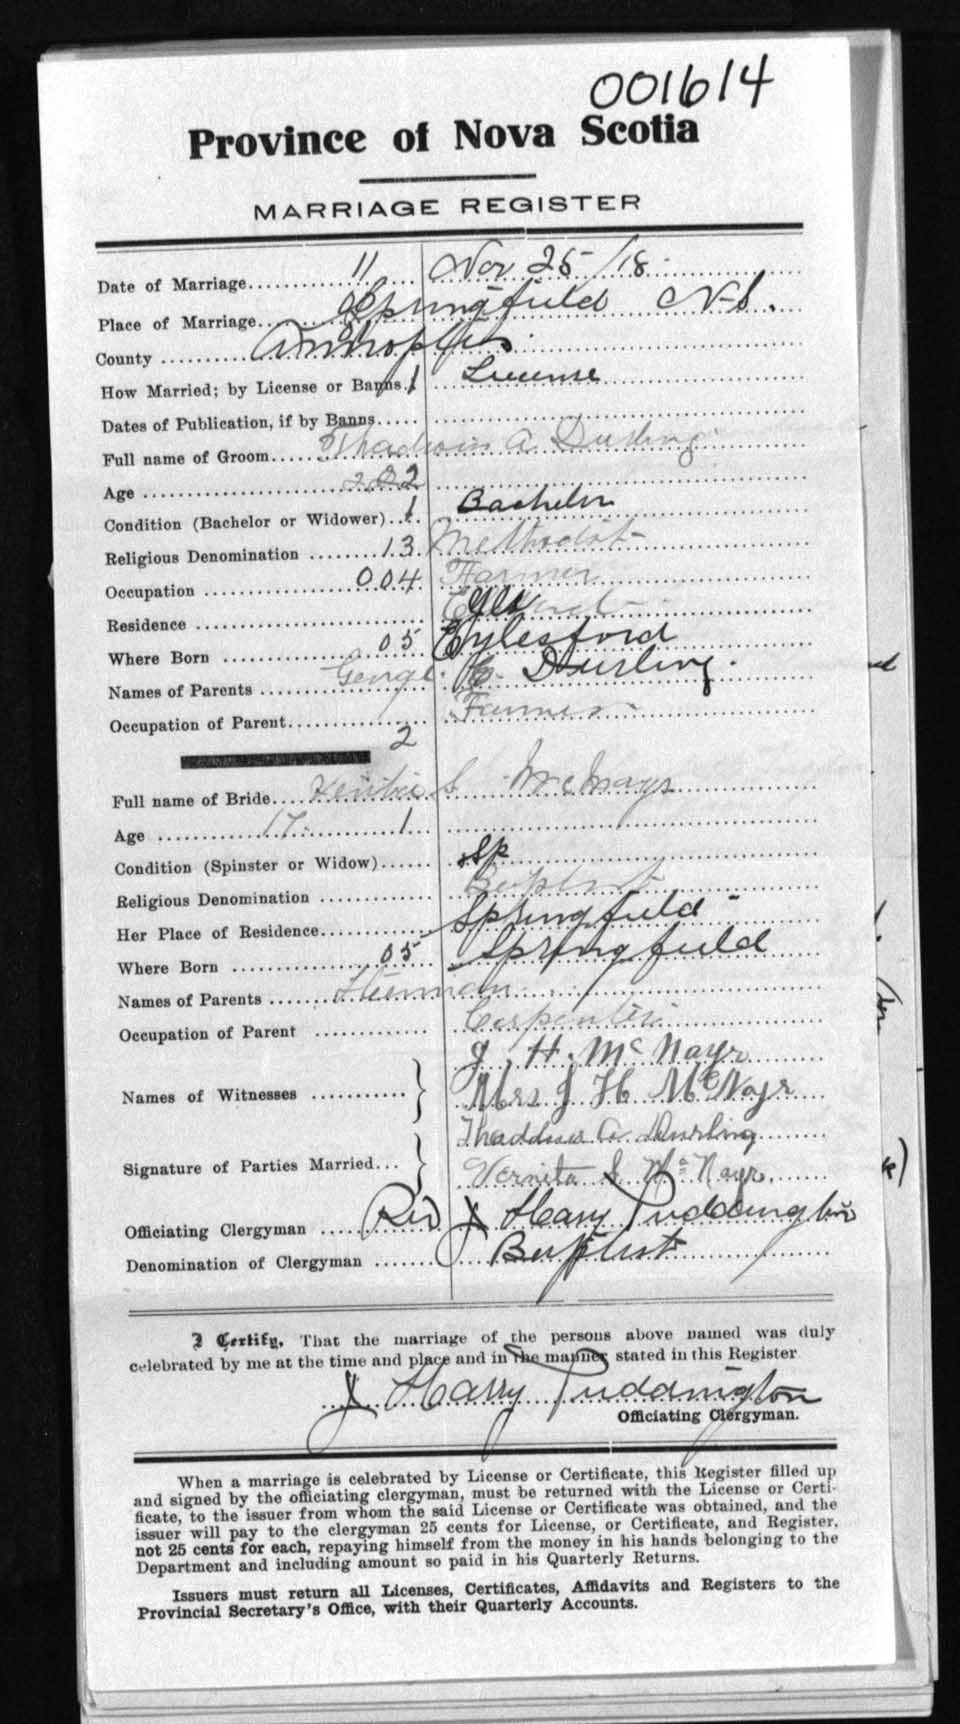 001614
Province of Nova Scotia
MARRIAGE REGISTER
Date of Marriage 11 Nov 25/18
Place of Marriage Springfield N-S.
County Annapolis
How Married; by License or Banns 1 License
Dates of Publication, if by Banns
Full name of Groom A Durling
Age 22 2
Condition (Bachelor or Widower) 1 Bachelor
Religious Denomination 13 Methodist
Occupation 004 Farmer
Residence
Where Born 05 Aylesford
Names of Parents George Durling.
Occupation of Parent Farmer
2
Full name of Bride S McNayr
Age 17 1
Condition (Spinster or Widow) Sp
Religious Denomination Baptist
Her Place of Residence Springfield
Where Born 05 Springfield
Names of Parents
Occupation of Parent Carpenter
J. H. McNayr
Names of Witnesses Mrs J H McNayr
Thaddeus A. Durling
Signature of Parties Married Vernita S McNayr
Officiating Clergyman Rev J Harry Puddington
Denomination of Clergyman Baptist
I Certify, That the marriage of the persons above named was duly
celebrated by me at the time and place and in the manner stated in this Register
J Harry Puddington
Officiating Clergyman.
When a marriage is celebrated by License or Certificate, this Register filled up
and signed by the officiating clergyman, must be returned with the License or Certi-
ficate, to the issuer from whom the said License or Certificate was obtained, and the
issuer will pay to the clergyman 25 cents for License, or Certificate, and Register,
not 25 cents for each, repaying himself from the money in his hands belonging to the
Department and including amount so paid in his Quarterly Returns.
Issuers must return all Licenses, Certificates, Affidavits and Registers to the
Provincial Secretary's Office, with their Quarterly Accounts.